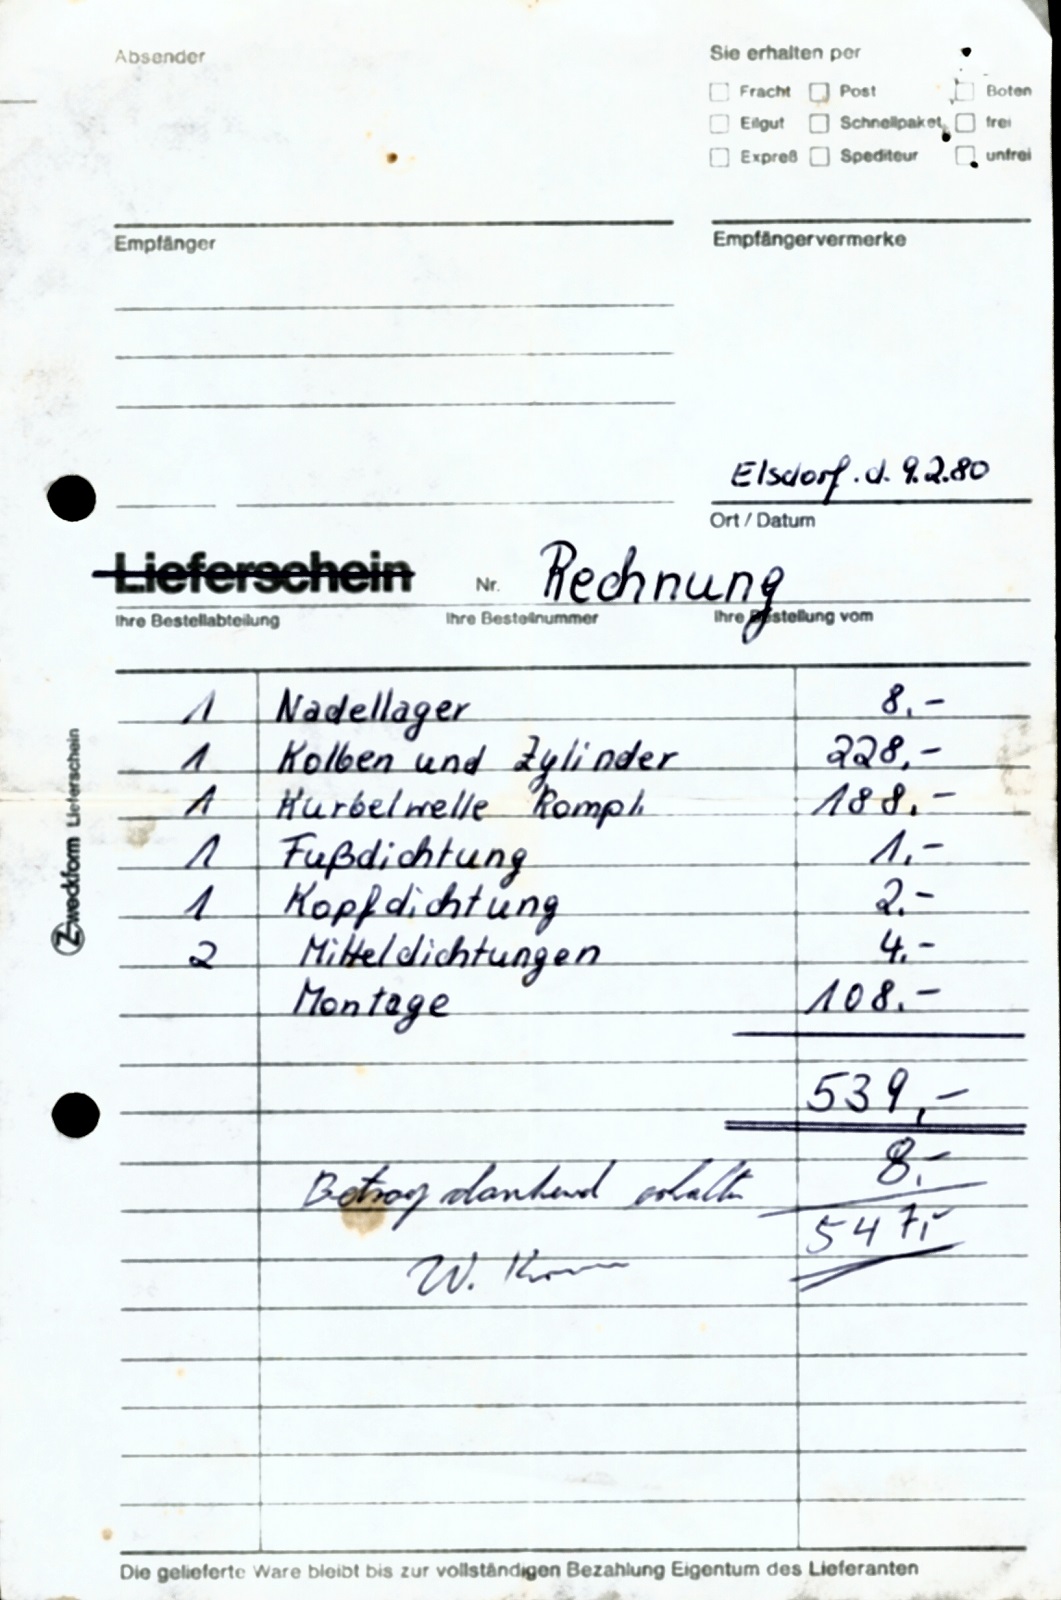 Absender
Sie erhalten per
Fracht Post Boten
Eilgut Schnellpaket frei
Expreß Spediteur unfrei
Empfänger
Empfängervermerke
Elsdorf. d. 9.2.80
Ort / Datum
Lieferschein Nr. Rechnung
Ihre Bestellabteilung Ihre Bestellnummer Ihre Bestellung vom
1 Nadellager 8,-
1 Kolben und Zylinder 228,-
1 Kurbelwelle Kompl. 188.-
1 Fußdichtung 1.-
1 Kopfdichtung 2.-
2 Mitteldichtungen 4.-
Montage 108.-
539,-
8,-
Betrag dankend erhalten
547,-
W.
Zweckform Lieferschein
Die gelieferte Ware bleibt bis zur vollständigen Bezahlung Eigentum des Lieferanten